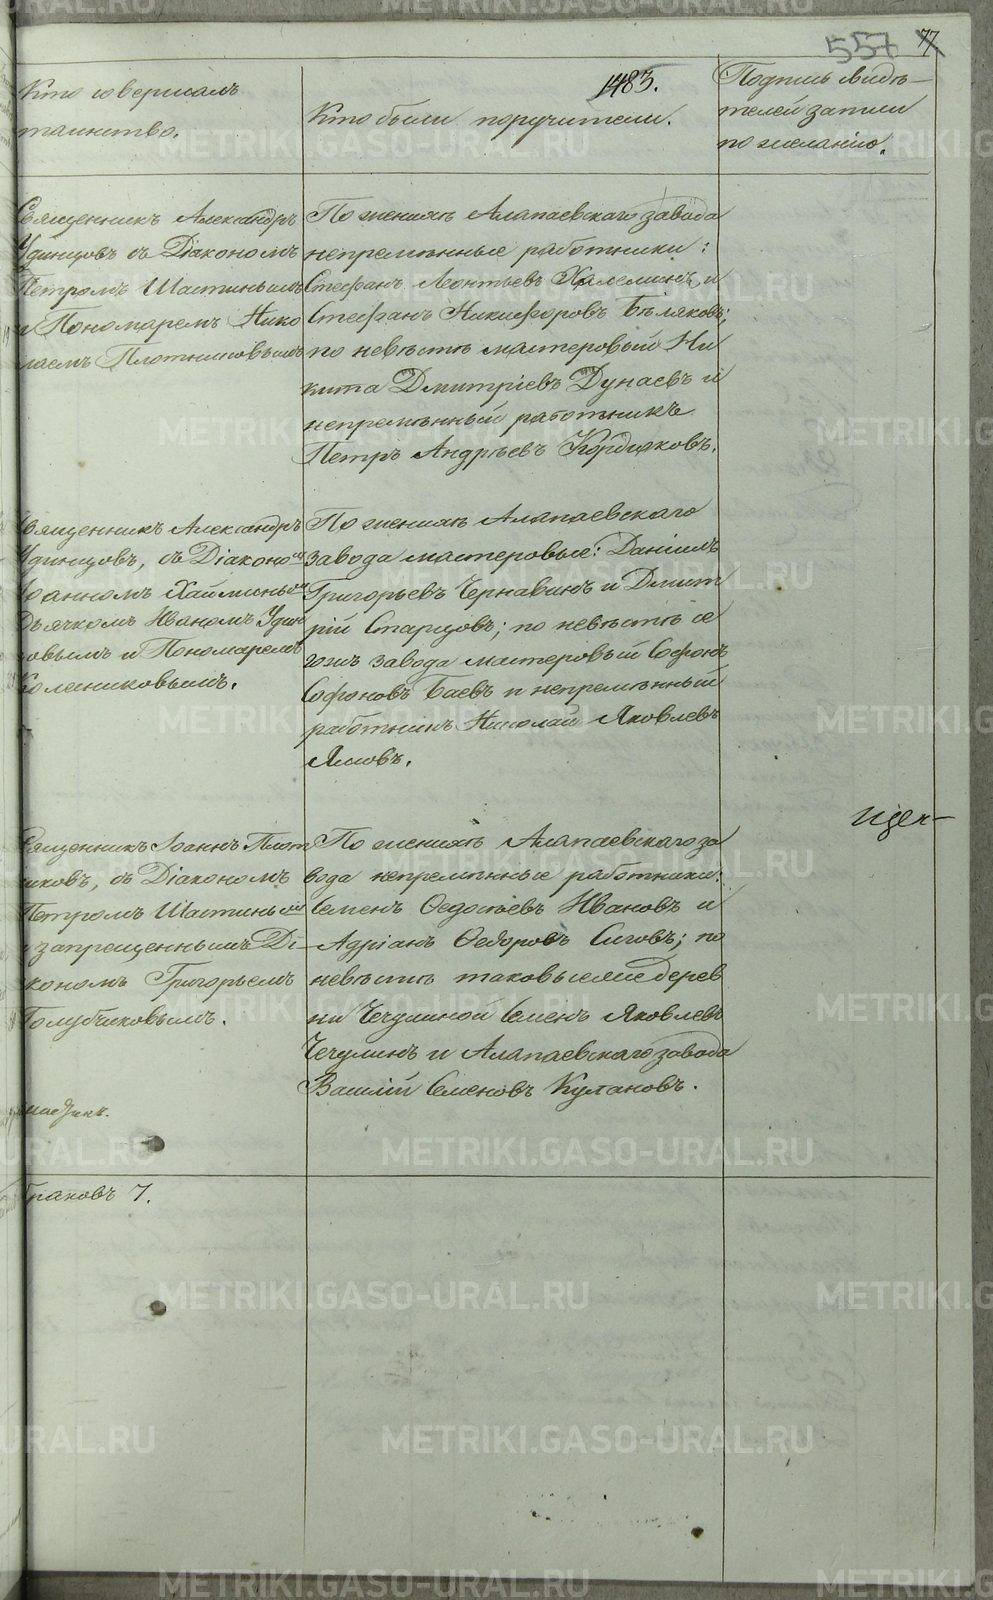 557 77
1483.
Кто совершалъ
таинство.
Кто были поручители.
Подпись свидѣ-
телей записи
по желанію.
Священникъ Александръ
Удинцовъ съ Діакономъ
Петромъ Шастинымъ
и Пономаремъ Нико
лаемъ Плотниковымъ
По женихѣ Алапаевскаго завода
непремѣнные работники:
Стефанъ Леонтьевъ Халеминъ, и
Стефанъ Никифоровъ Бѣляковъ;
по невѣстѣ мастеровый Ни
кита Дмитріевъ Дунаевъ и
непремѣнный работникъ
Петръ Андреевъ Кордюковъ.
Священникъ Александръ
Удинцовъ, съ Діакономъ
Іоанномъ Хайминымъ
Дьячкомъ Иваномъ Удин
цовымъ и Пономаремъ
Колесниковымъ.
По женихѣ Алапаевскаго
завода мастеровые: Даніилъ
Григорьевъ Чернавинъ и Дмит
рій Старцовъ; по невѣстѣ се
гожъ завода мастеровый Софонъ
Софоновъ Баевъ и непремѣнный
работникъ Николай Яковлевъ
Ямовъ.
Священникъ Іоаннъ Плот
никовъ, съ Діакономъ
Петромъ Шастинымъ
и запрещеннымъ Ді-
акономъ Григорьемъ
Голубчиковымъ.
По женихѣ Алапаевскаго за
вода непремѣнные работники:
Семенъ Ѳедосѣевъ Ивановъ и
Адріанъ Ѳедоровъ Сиговъ; по
невѣстѣ таковыеже дерев
ни Чечулиной Семенъ Яковлевъ
Чечулинъ и Алапаевскаго завода
Василій Семеновъ Кулановъ.
браковъ 7.
METRIKI.GASO-URAL.RU